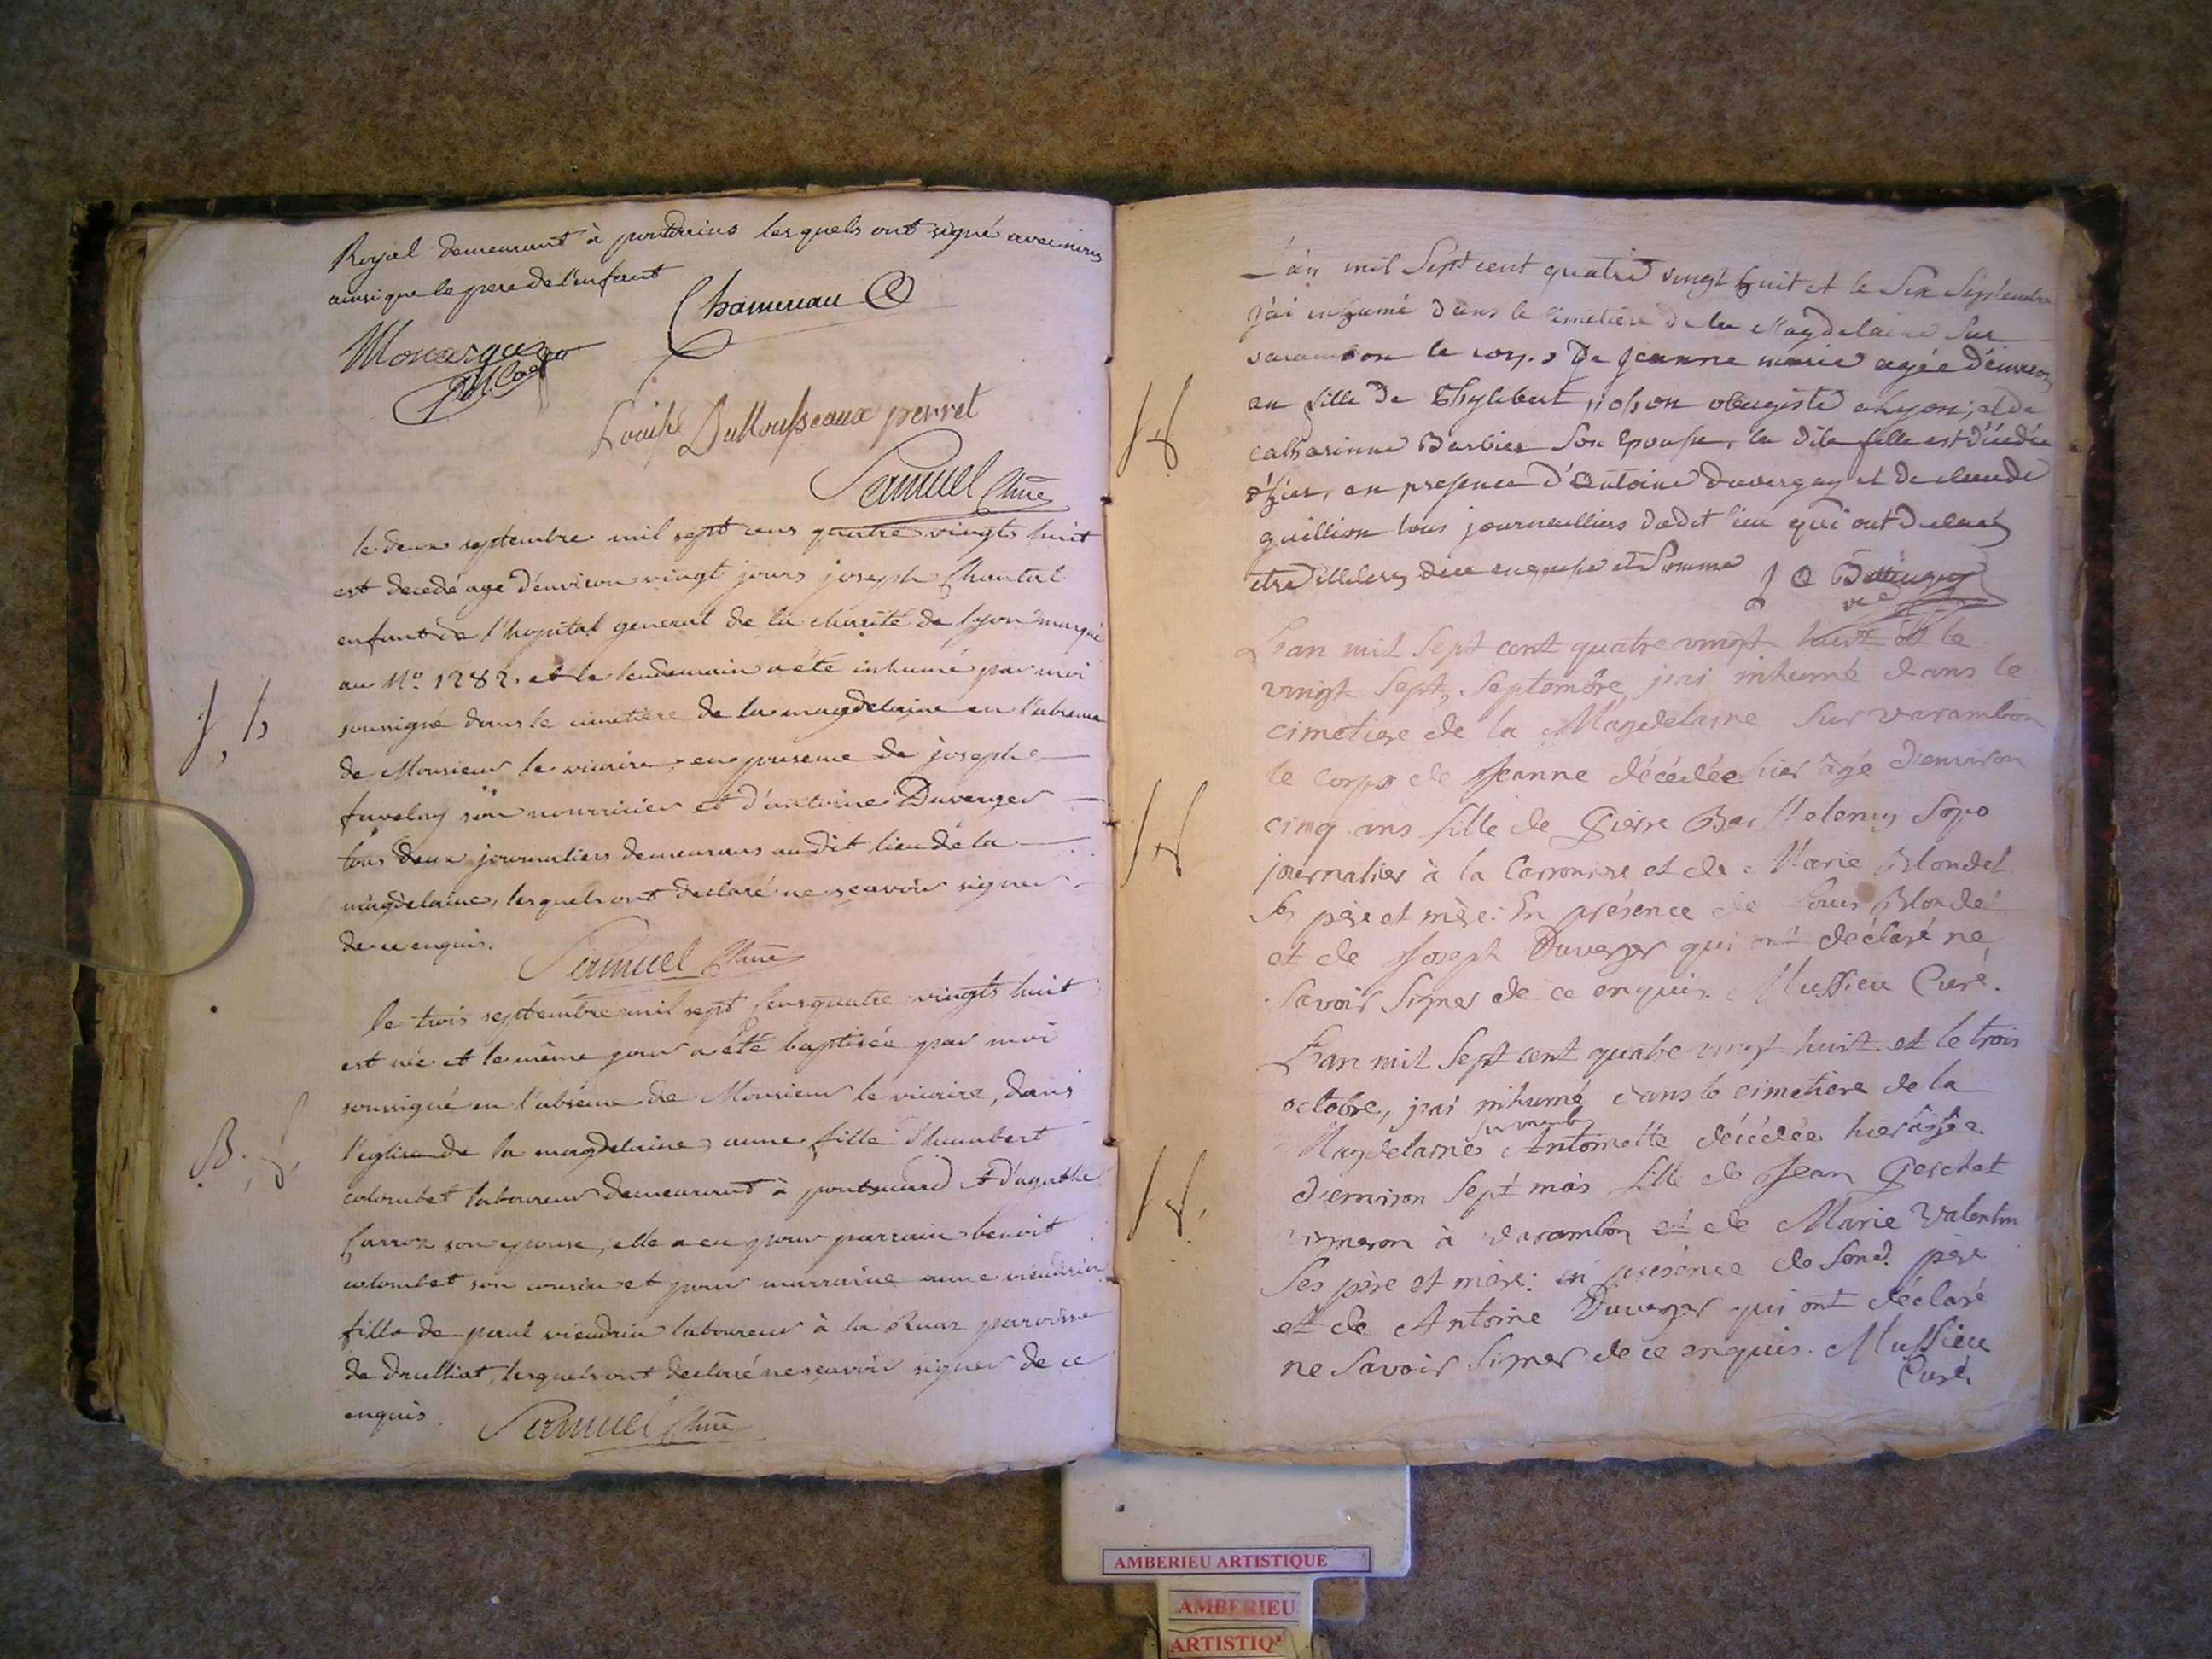 Royal demeurant à pontdains lesquels ont signé avec nous
ainsi que le pere de l'enfant
Chamereau
Louise Durousseaux perret
Samuel Chne
le deux septembre mil sept cens quatre vingts huit
est decedé agé d'environ vingt jours joseph Chantal
enfant de l'hopital general de la charité de lyon marqué
au No. 1282. et le lendemain a été inhumé par moi
soussigné dans le cimetière de la magdelaine en l'absence
de Monsieur le vicaire en presence de joseph
son nourricier et d'antoine Duverger
tous deux journaliers demeurans audit lieu de la
magdelaine, lesquels ont declaré ne sçavoir signer
de ce enquis.
Samuel Chne
J, b
le trois septembre mil sept cens quatre vingts huit
est née et le même jour a été baptisée par moi
soussigné en l'absence de Monsieur le vicaire, dans
l'eglise de la magdelaine, anne fille d'humbert
colombet laboureur demeurant à et d'agathe
son epouse, elle a eu pour parrain benoit
colombet son cousin et pour marraine anne vieudrin
fille de paul vieudrin laboureur à la Ruaz paroisse
de druilliat, lesquels ont declaré ne sçavoir signer de ce
enquis.
Samuel Chne
B. f
L'an mil Sept cent quatre vingt huit et le Six Septembre
j'ai inhumé dans le cimetière de la Magdelaine Sur
varambon le corps de Jeanne marie agée d'environ
an fille de Thylibert a Lyon, et de
catharinne Barbier Son Epouse, la dite fille est décédée
d'hier, en presence d'Antoine duvergey et de claude
guillion tous journalliers dudit lieu qui ont declaré
etre illiteres de ce enquis et Somme
L'an mil Sept cent quatre vingt huit et le
vingt Sept, Septembre, j'ai inhumé dans le
cimetiere de la Magdelaine Sur varambon
le corps de Jeanne décédée hier âgé d'environ
cinq ans fille de Pierre Barthelemy
journalier à la Carronire et de Marie Blondel
Ses père et mère: En présence de Louis Blondel
et de Joseph Duverger qui ont déclaré ne
Savoir Signer de ce enquis. Mussieu Curé.
L'an mil Sept cent quatre vingt huit et le trois
octobre, j'ai inhumé dans le cimetiere de la
Magdelaine Antoinette décédée hier âgée
d'environ Sept mois fille de Jean Peschet
vigneron à varambon et de Marie Valentin
Ses père et mère: en présence de Sond. père
et de Antoine Duverger qui ont déclaré
ne Savoir Signer de ce enquis. Mussieu
Curé.
AMBERIEU ARTISTIQUE
AMBERIEU
ARTISTIQ